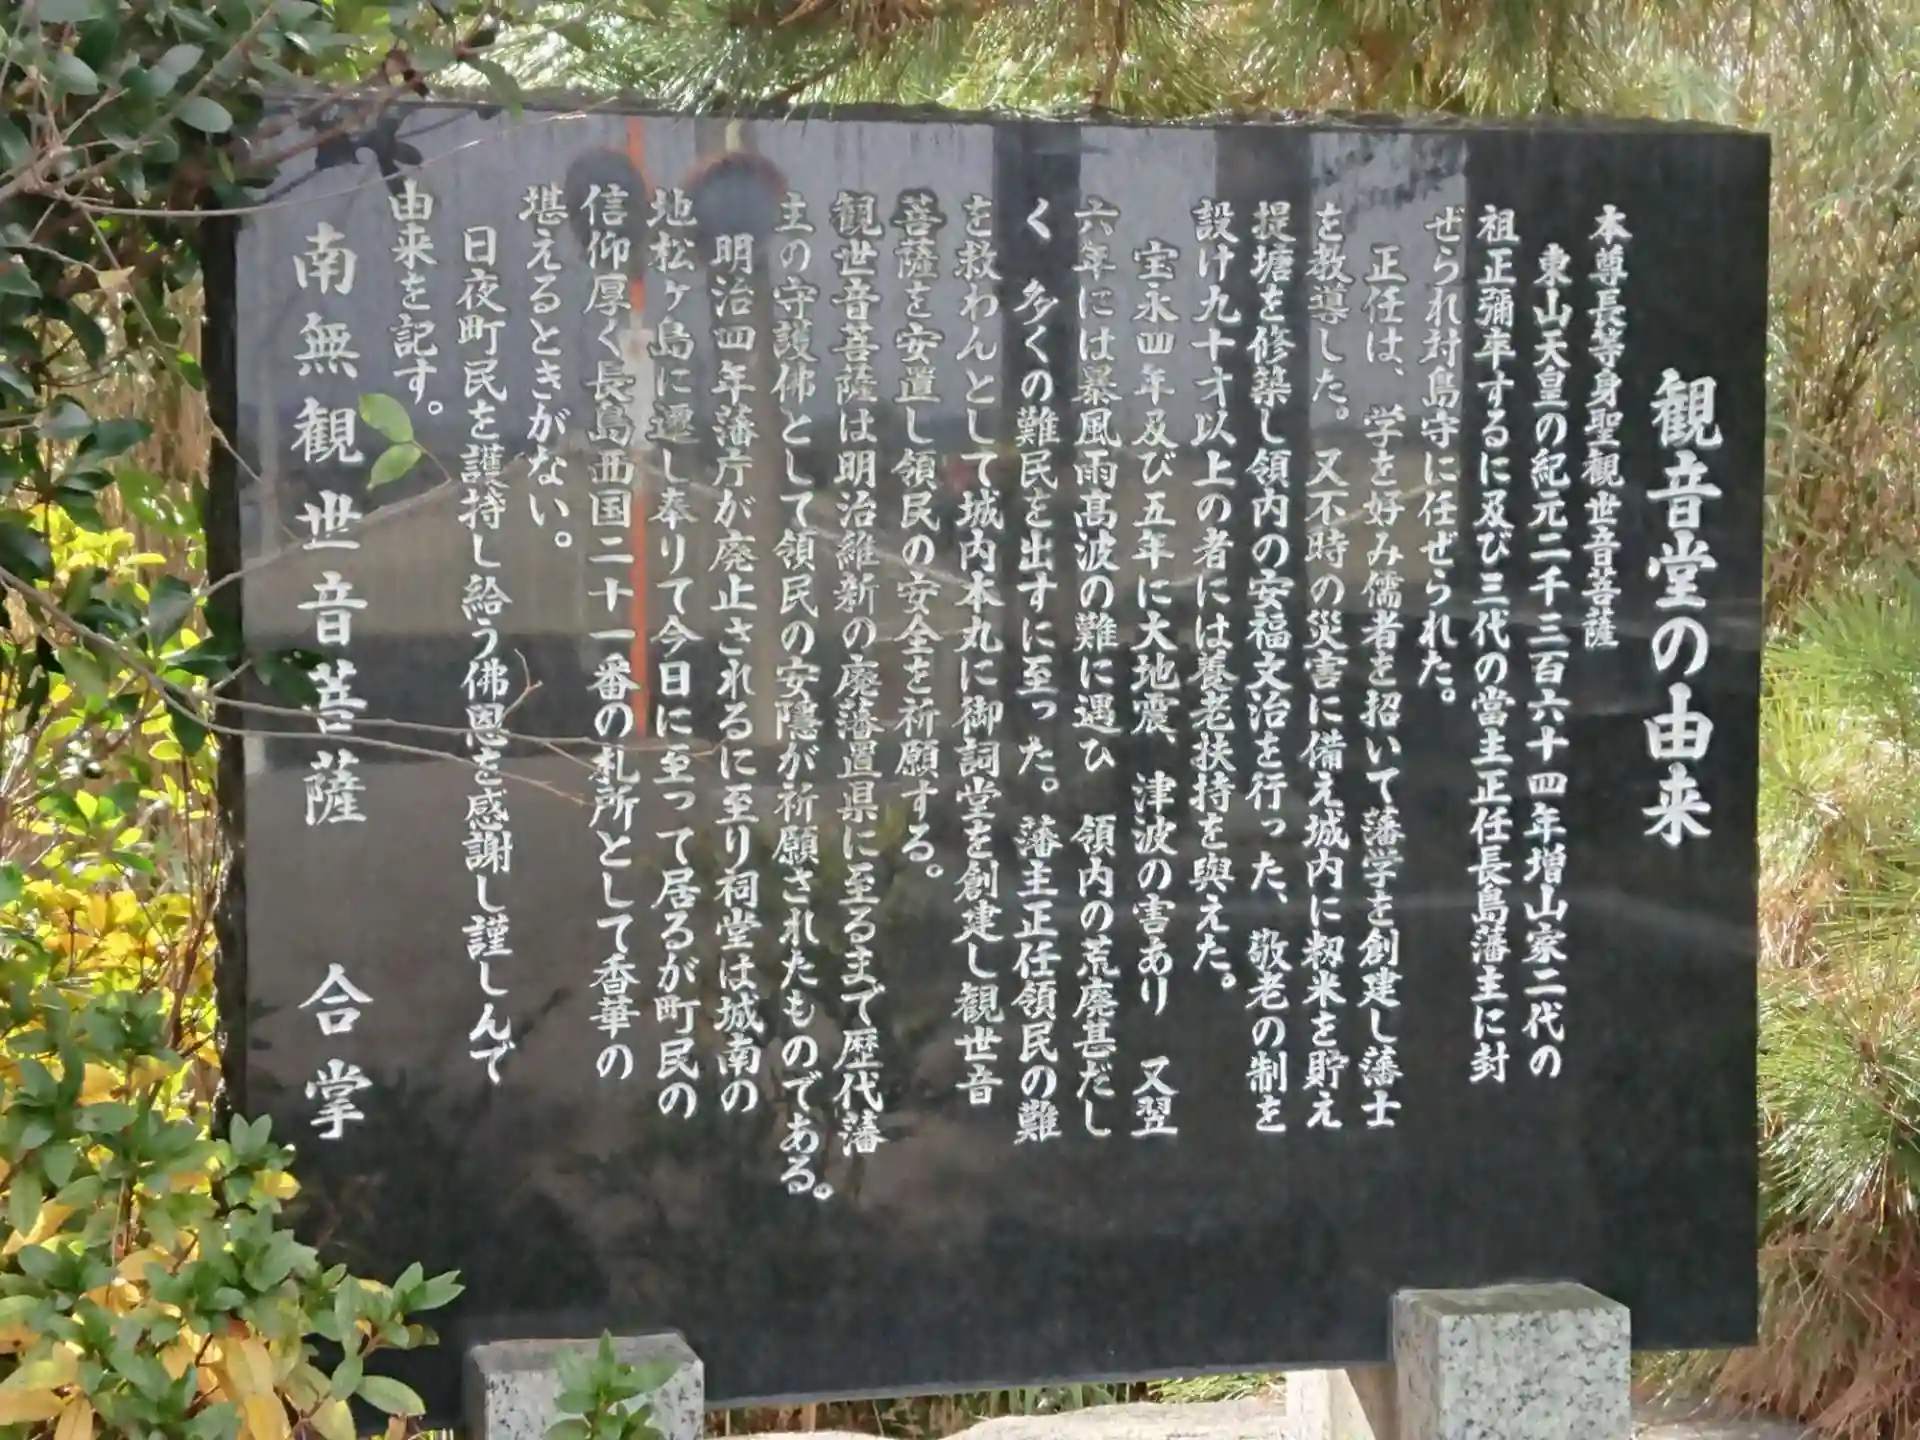 観音堂の由来
本尊長等身聖観世音菩薩
東山天皇の紀元二千三百六十四年増山家二代の
祖正彌卒するに及び三代の當主正任長島藩主に封
ぜられ対島守に任ぜられた。
正任は、学を好み儒者を招いて藩学を創建し藩士
を教導した。又不時の災害に備え城内に籾米を貯え
提塘を修築し領内の安福文治を行った、敬老の制を
設け九十才以上の者には養老扶持を與えた。
宝永四年及び五年に大地震、津波の害あり 又翌
六年には暴風雨高波の難に遇ひ 領内の荒廃甚だし
く 多くの難民を出すに至った。藩主正任領民の難
を救わんとして城内本丸に御詞堂を創建し観世音
菩薩を安置し領民の安全を祈願する。
観世音菩薩は明治維新の廃藩置県に至るまで歴代藩
主の守護佛として領民の安隠が祈願されたものである。
明治四年藩庁が廃止されるに至り祠堂は城南の
地松ヶ島に遷し奉りて今日に至って居るが町民の
信仰厚く長島西国二十一番の札所として香華の
堪えるときがない。
日夜町民を護持し給う佛恩を感謝し謹しんで
由来を記す。
南無観世音菩薩 合掌